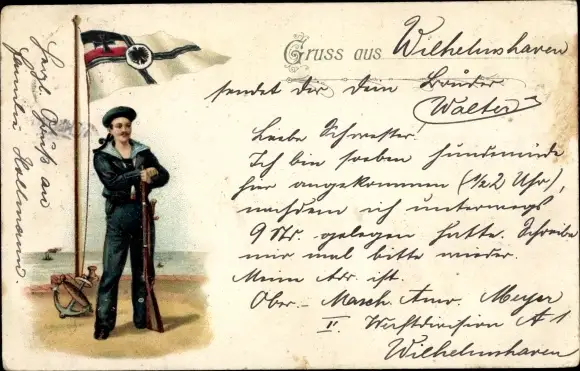 Gruss aus Wilhelmshaven
sendet dir dein Bruder
Walter
Liebe Schwester!
Ich bin soeben hundemüde
hier angekommen (½2 Uhr),
nachdem ich unterwegs
9 Std. gelegen hatte. Schreibe
mir mal bitte wieder.
Meine Adr. ist.
Ober-Masch. Anw. Meyer
II Werftdivision A 1
Wilhelmshaven
Herzl. Gruß an
Familie Hollmann.